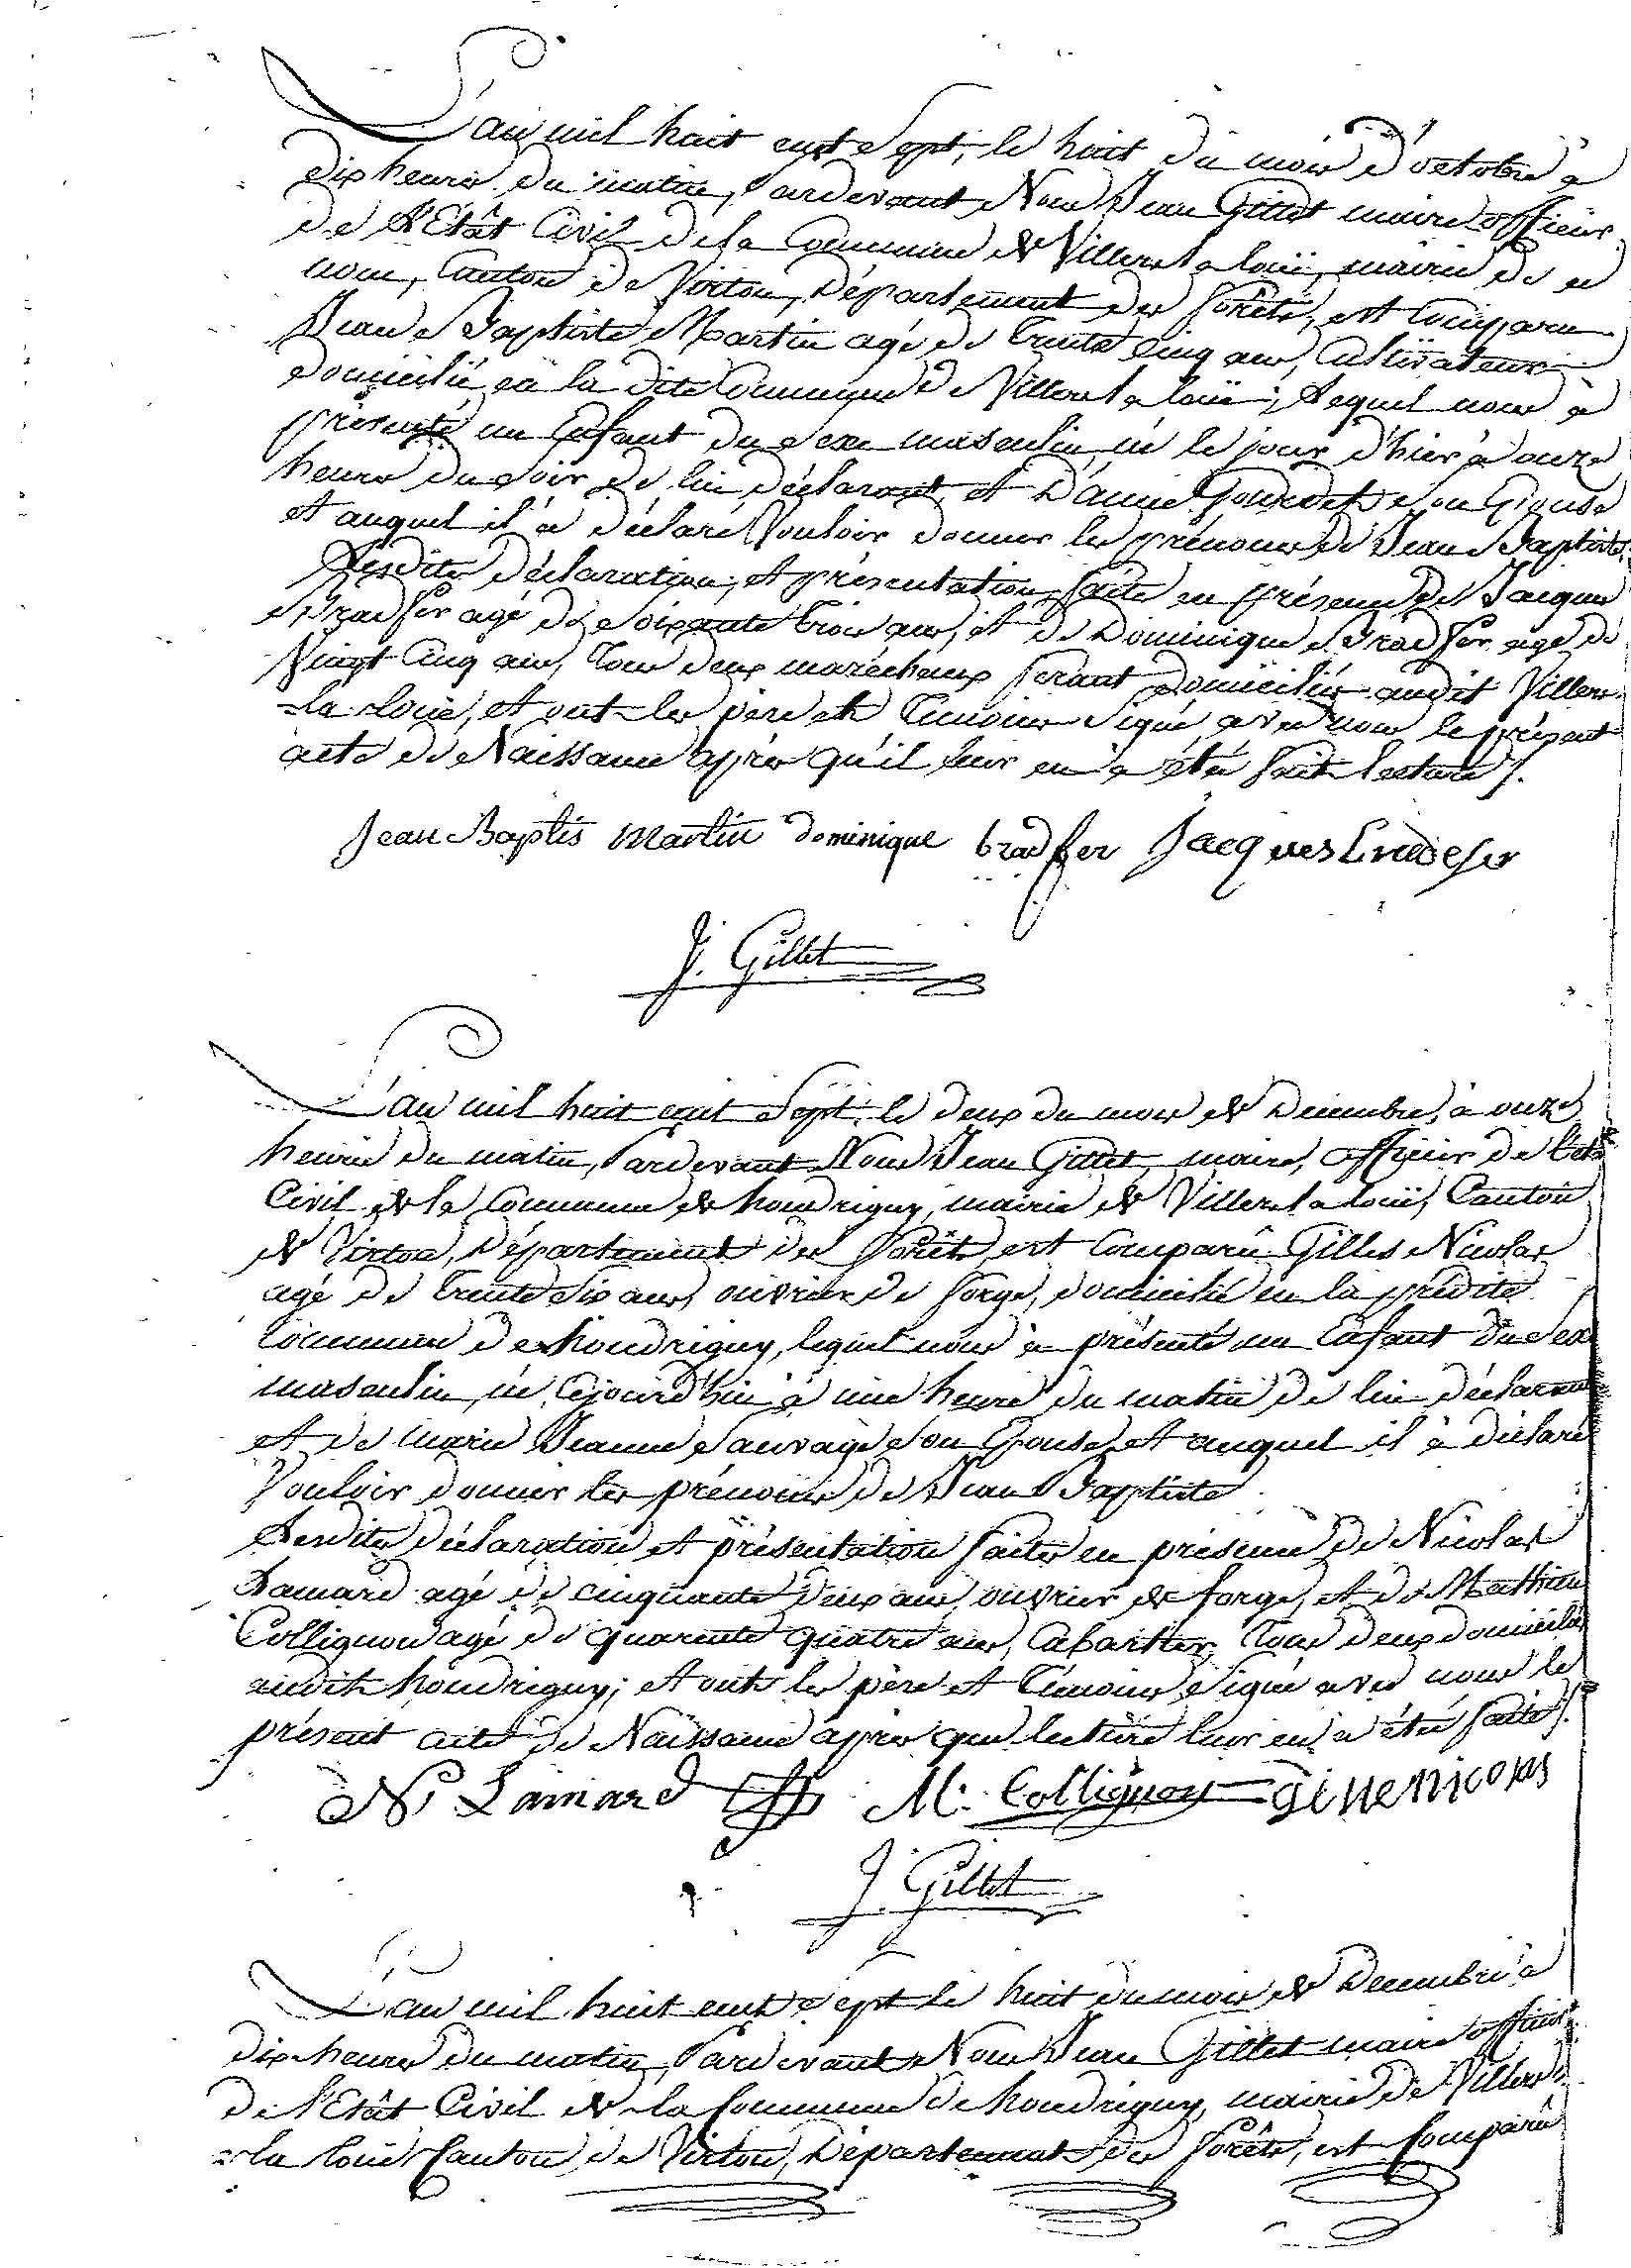 L'an mil huit cent Sept, le huit du mois d'octobre à
dix heures du matin, Pardevant Nous Jean Gillet maire officier
de l'Etât Civil de la Commune de Villers la loüe, mairie de ce
nom, Canton de Virton, Département des forêts, est Comparu
Jean Baptiste Martin agé de trente cinq ans, Cultivateur
domicilié en la dite Commune de Villers la loüe; Lequel nous à
présenté un Enfant du Sexe masculin, né le jour d'hier à onze
heures du Soir, de lui déclarant, et D'anne Gourdet Son Epouse
et auquel il à déclaré Vouloir donner les prénoms de Jean Baptiste,
Lesdites Déclaration, et présentation faites en présence de Jacques
Bradfer agé de Soixante trois ans, et de Dominique Bradfer agé de
Vingt Cinq ans, tous deux maréchaux ferant domiciliés audit Villers
-la-Loüe, et ont les père et témoins Signé avec nous le présent
acte de Naissance après qu'il leur en à été fait lecture ./.
Jean Baptis Martin dominique bradfer Jacques bradefer
J. Gillet
L'an mil huit cent Sept, le deux du mois de Décembre, à onze
heures du matin, Pardevant Nous Jean Gillet, maire, officier de l'etat
Civil de la Commune de houdrigny, mairie de Villers la loüe, Canton
de Virton, Département des forêts, est Comparû Gilles Nicolas
agé de trente Six ans, ouvrier de forge, domicilié en la prédite
Commune de houdrigny, lequel nous à présenté un Enfant du Sexe
masculin, né Cejourd'hui à une heure du matin de lui déclarant
et de marie Jeanne Sauvage Son Epouse, et auquel il à déclaré
Vouloir donner les prénoms de Jean Baptiste
Lesdites déclaration et présentation faites en présence de Nicolas
Lamard agé de cinquante deux ans, ouvrier de forge, et de Mathieu
Collignon agé de quarente quatre ans, Cabartier, tous deux domiciliés
audit houdrigny; et ont les père et témoins Signé avec nous le
présent acte de Naissance après que lecture leur en a été faite ./.
N Lamard M. Collignon gille nicolas
J. Gillet
L'an mil huit cent Sept le huit du mois de Décembre à
dix heures du matin, Pardevant Nous Jean Gillet maire officier
de l'Etât Civil de la Commune de houdrigny, mairie de Villers
-la Loüe Canton de Virton, Département des forêts, est Comparû